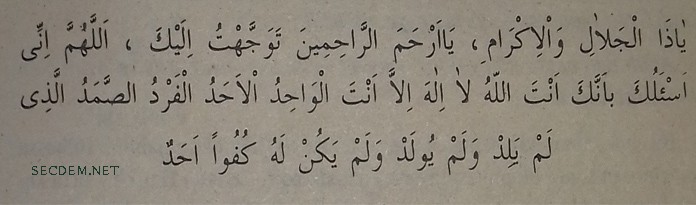 يَاذَا الْجَلَالِ وَاْلاِكْرَامِ، يَااَرْحَمَ الرَّاحِمِينَ تَوَجَّهْتُ اِلَيْكَ ، اَللّٰهُمَّ اِنِّى
اَسْئَلُكَ بِاَنَّكَ اَنْتَ اللّٰهُ لاٰ اِلٰهَ اِلاَّ اَنْتَ الْوَاحِدُ اْلاَحَدُ الْفَرْدُ الصَّمَدُ الَّذِى
لَمْ يَلِدْ وَلَمْ يُولَدْ وَلَمْ يَكُنْ لَهُ كُفُواً اَحَدٌ
SECDEM.NET